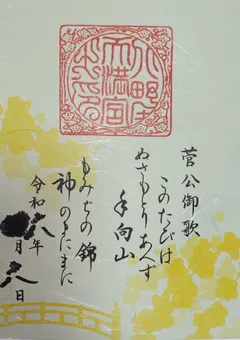 菅公御歌
このたびは
ぬさもとりあへず
手向山
もみぢの錦
神のまにまに
令和六年
月 日
北野天満宮